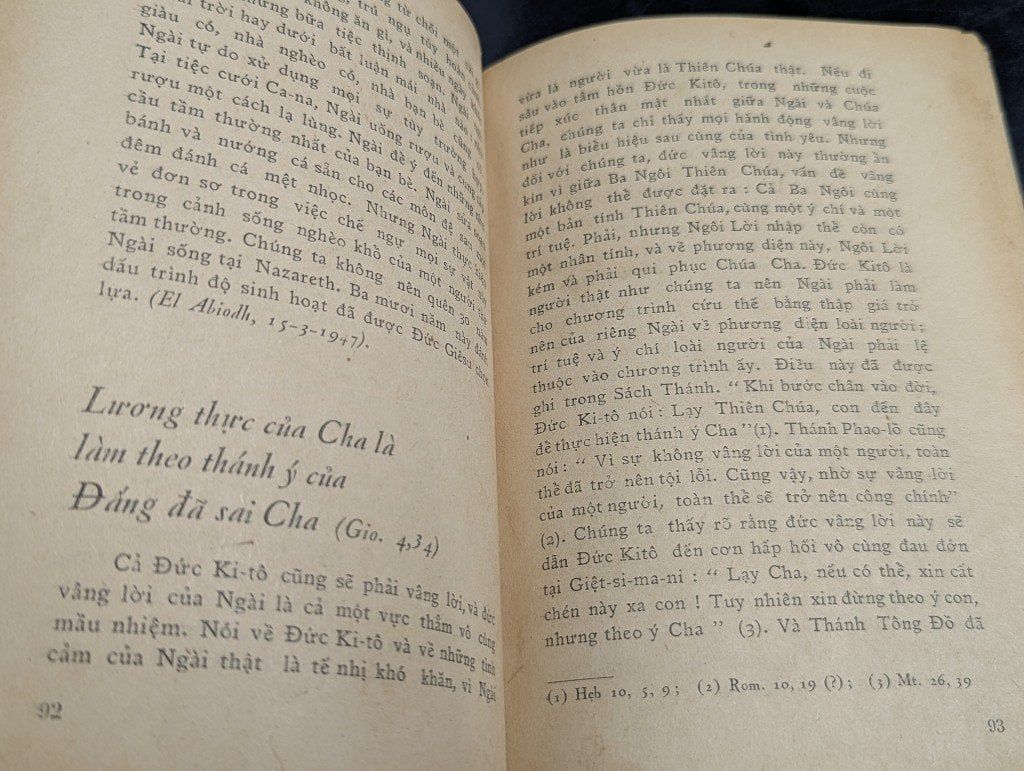 từ chối một
trú ngụ tùy hoàn
không ăn gì, và nhiều ngày
những bữa tiệc thịnh soạn. Ngài
trời hay dưới bất luận mái nhà nào
giàu có, nhà nghèo có, nhà bạn bè cũng có
Ngài tự do xử dụng mọi sự tùy trường
Tại tiệc cưới Ca-na, Ngài uống rượu và cung cấp
rượu một cách lạ lùng. Ngài để ý đến những
cầu tầm thường nhất của bạn bè. Ngài sửa soạn
bánh và nướng cá sẵn cho các môn đệ sau một
đêm đánh cá mệt nhọc. Nhưng Ngài thực hiện
vẻ đơn sơ trong việc chế ngự mọi sự vật
trong cảnh sống nghèo khổ của một người thợ
tầm thường. Chúng ta không nên quên 30 năm
Ngài sống tại Nazareth. Ba mươi năm này đánh
dấu trình độ sinh hoạt đã được Đức Giêsu chọn
lựa. (El Abiodh, 15-3-1947).
Lương thực của Cha là
làm theo thánh ý của
Đấng đã sai Cha (Gio. 4,34)
Cả Đức Ki-tô cũng sẽ phải vâng lời, và đức
vâng lời của Ngài là cả một vực thẳm vô cùng
mầu nhiệm. Nói về Đức Ki-tô và về những tình
cảm của Ngài thật là tế nhị khó khăn, vì Ngài
92
vừa là người vừa là Thiên Chúa thật. Nếu đi
sâu vào tâm hồn Đức Kitô, trong những cuộc
tiếp xúc thân mật nhất giữa Ngài và Chúa
Cha, chúng ta chỉ thấy mọi hành động vâng lời
như là biểu hiệu sau cùng của tình yêu. Nhưng
đối với chúng ta, đức vâng lời này thường ẩn
kín vì giữa Ba Ngôi Thiên Chúa, vấn đề vâng
lời không thể được đặt ra : Cả Ba Ngôi cùng
một bản tính Thiên Chúa, cùng một ý chí và một
trí tuệ. Phải, nhưng Ngôi Lời nhập thể còn có
một nhân tính, và về phương diện này, Ngôi Lời
kém và phải qui phục Chúa Cha. Đức Kitô là
người thật như chúng ta nên Ngài phải làm
cho chương trình cứu thế bằng thập giá trở
nên của riêng Ngài về phương diện loài người ;
trí tuệ và ý chí loài người của Ngài phải lệ
thuộc vào chương trình ấy. Điều này đã được
ghi trong Sách Thánh. “ Khi bước chân vào đời,
Đức Ki-tô nói : Lạy Thiên Chúa, con đến đây
để thực hiện thánh ý Cha ”(1). Thánh Phao-lô cũng
nói : “ Vì sự không vâng lời của một người, toàn
thể đã trở nên tội lỗi. Cũng vậy, nhờ sự vâng lời
của một người, toàn thể sẽ trở nên công chính”
(2). Chúng ta thấy rõ rằng đức vâng lời này sẽ
dẫn Đức Kitô đến cơn hấp hối vô cùng đau đớn
tại Giệt-si-ma-ni : “ Lạy Cha, nếu có thể, xin cất
chén này xa con ! Tuy nhiên xin đừng theo ý con,
nhưng theo ý Cha ” (3). Và Thánh Tông Đồ đã
(1) Hẹb 10, 5, 9 ; (2) Rom. 10, 19 (?) ; (3) Mt. 26, 39
93